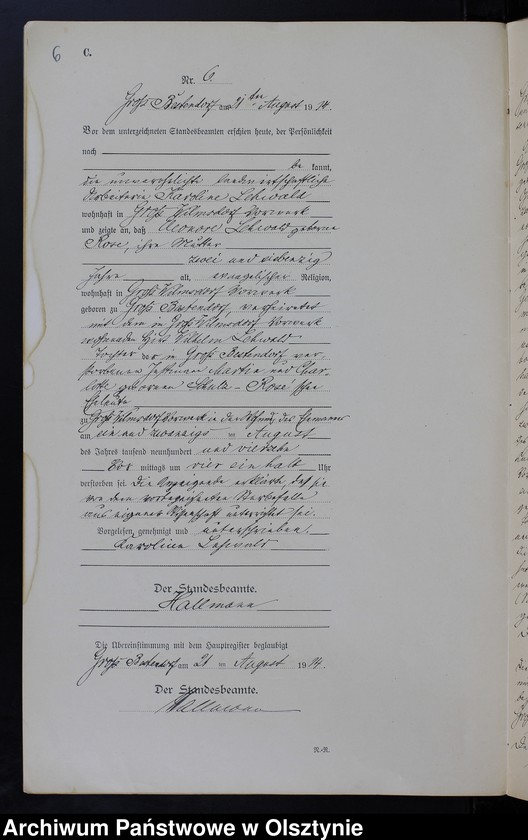 6
C.
Nr. 6.
Groß Bestendorf am 21ten August 1914.
Vor dem unterzeichneten Standesbeamten erschien heute, der Persönlichkeit
nach
be kannt,
die unverehelichte landwirtschaftliche
Arbeiterin Karoline Lehwald
wohnhaft in Groß Wilmsdorf Vorwerk
und zeigte an, daß Eleonore Lehwald geborene
Rose, ihre Mutter
zwei und siebenzig
Jahre alt, evangelischer Religion,
wohnhaft in Groß Wilmsdorf Vorwerk
geboren zu Groß Bestendorf, verheiratet
mit dem in Groß Wilmsdorf Vorwerk
wohnenden Hirt Wilhelm Lehwald
Tochter der in Groß Bestendorf ver-
storbenen Instmann Martin und Char-
lotte geborenen Schulz - Rose'schen
Eheleute
zu Groß Wilmsdorf Vorwerk in der Wohnung des Ehemannes
am ein und zwanzigs im August
des Jahres tausend neunhundert und vierzehn
Vor mittags um vier ein halb Uhr
verstorben sei. Die Anzeigende erklärte, daß sie
von dem vorbezeichneten Sterbefalle
aus eigener Wissenschaft unterrichtet sei.
Vorgelesen, genehmigt und unterschrieben.
Karoline Lehwald
Der Standesbeamte.
Hallmann
Die Übereinstimmung mit dem Hauptregister beglaubigt
Groß Bestendorf am 21 im August 1914.
Der Standesbeamte.
Hallmann
N.-R.
Archiwum Państwowe w Olsztynie